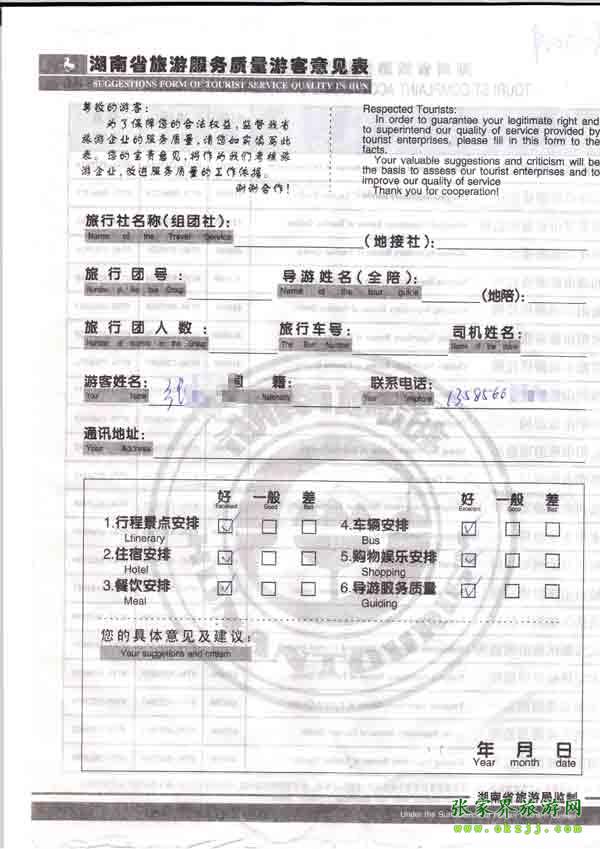 湖南省旅游服务质量游客意见表
SUGGESTIONS FORM OF TOURIST SERVICE QUALITY IN HUN
尊敬的游客:
为了保障您的合法权益,监督我省
旅游企业的服务质量,请您如实填写此
表。您的宝贵意见,将作为我们考核旅
游企业,改进服务质量的工作依据。
谢谢合作!
Respected Tourists:
In order to guarantee your legitimate right and
to superintend our quality of service provided by
tourist enterprises, please fill in this form to the
facts.
Your valuable suggestions and criticism will be
the basis to assess our tourist enterprises and to
improve our quality of service
Thank you for cooperation!
旅行社名称(组团社): (地接社):
Name of the Travel Service
旅行团号: 导游姓名(全陪): (地陪):
Name of the tour guide
旅行团人数: 旅行车号: 司机姓名:
The Bus Number
游客姓名: 籍: 联系电话: 1358566
Your Name Nationality Your Telephone
通讯地址:
Your Address
好 一般 差 好 一般 差
Excellent Good Bad Excellent Good Bad
1.行程景点安排 4.车辆安排
Ltinerary Bus
2.住宿安排 5.购物娱乐安排
Hotel Shopping
3.餐饮安排 6.导游服务质量
Meal Guiding
您的具体意见及建议:
Your suggetions and critesm
年 月 日
Year month date
湖南省旅游局监制
Under the Su
张家界旅游网
www.okzjj.com